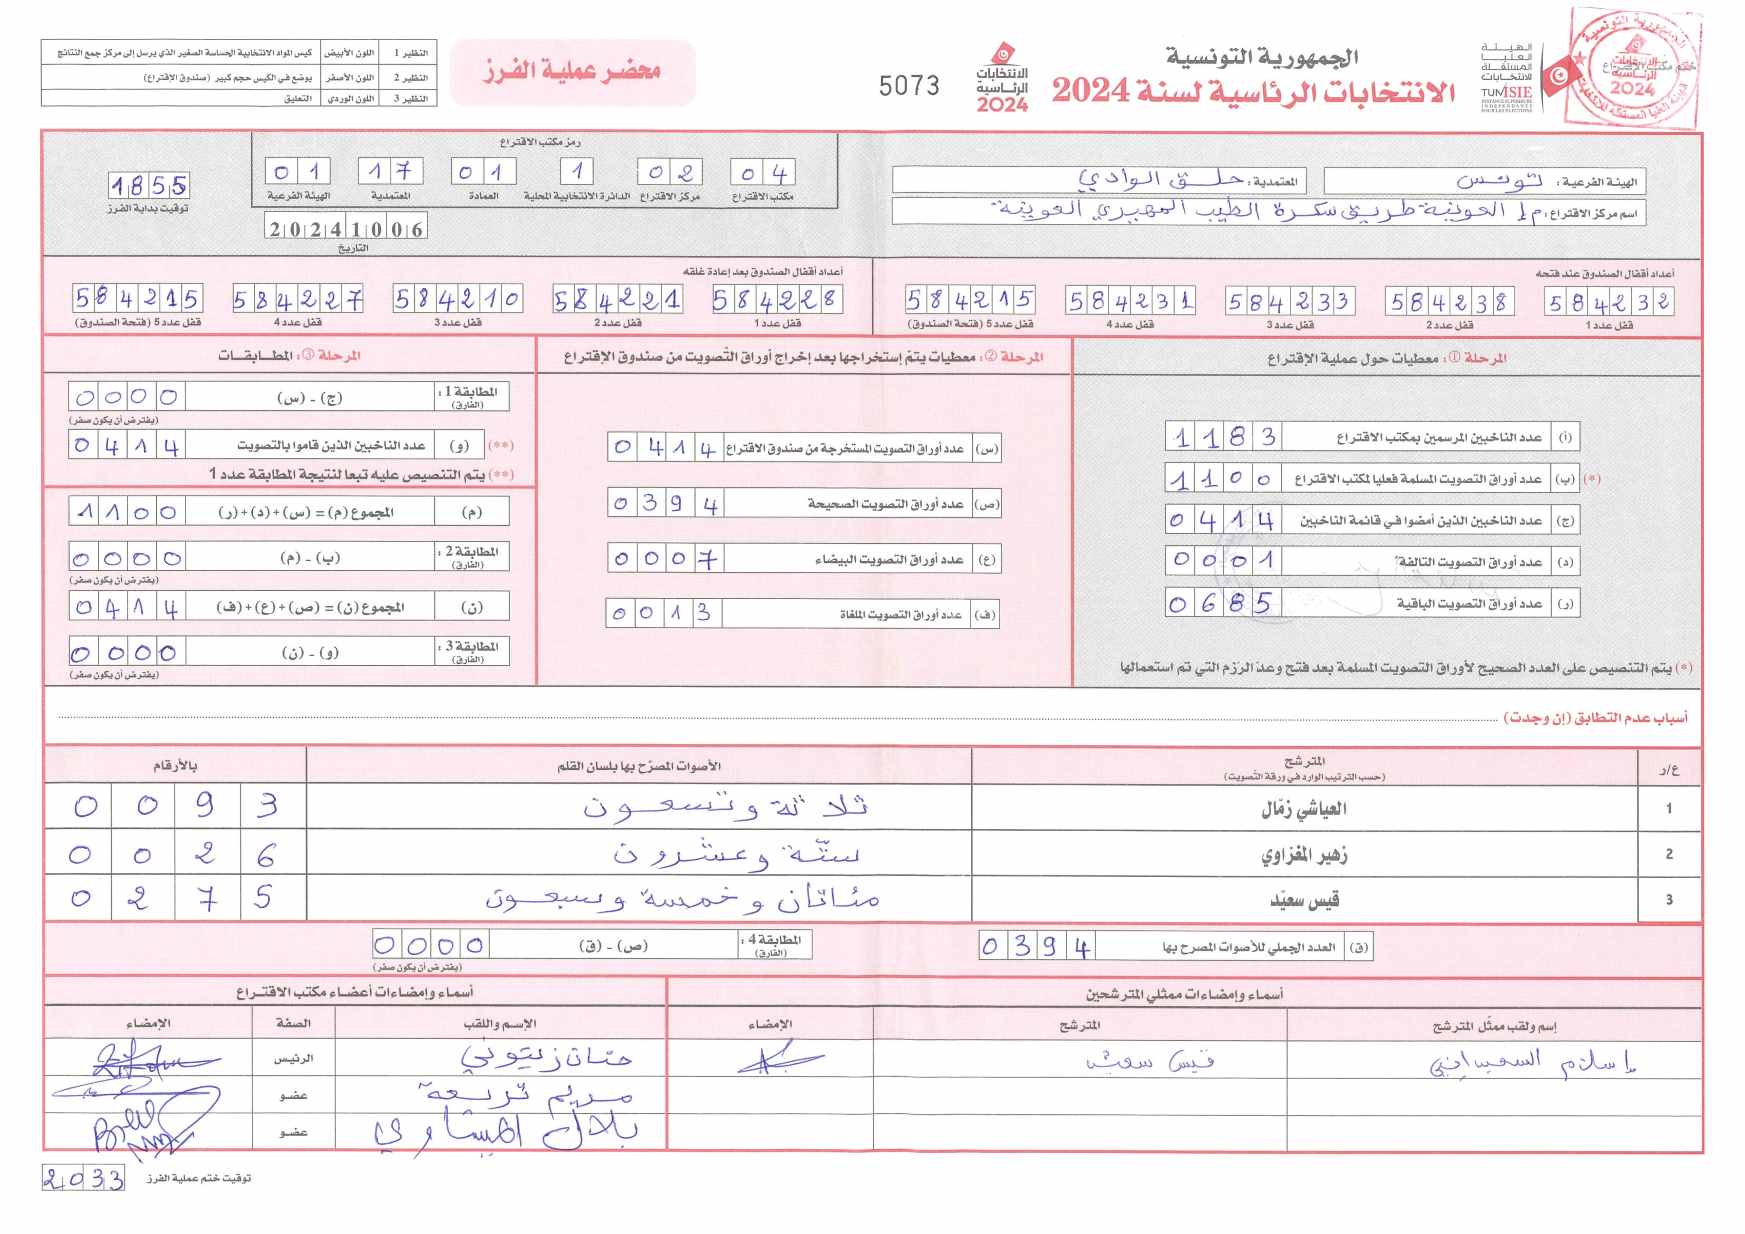 الجمهورية التونسية
الانتخابات الرئاسية لسنة 2024
الهيئة العليا المستقلة للانتخابات
TUNISIE
INSTANCE SUPERIEURE INDEPENDANTE POUR LES ELECTIONS
ختم مكتب الاقتراع
الانتخابات الرئاسية 2024
5073
محضر عملية الفرز
النظير 1 اللون الأبيض كيس المواد الانتخابية الحساسة الصغير الذي يرسل إلى مركز جمع النتائج
النظير 2 اللون الأصفر يوضع في الكيس حجم كبير (صندوق الاقتراع)
النظير 3 اللون الوردي التعليق
الهيئة الفرعية: تونس
المعتمدية: حلق الوادي
اسم مركز الاقتراع: م إ العوينة طريق سكرة الطيب المهيري العوينة
رمز مكتب الاقتراع
04 02 1 01 17 01
مكتب الاقتراع مركز الاقتراع الدائرة الانتخابية المحلية العمادة المعتمدية الهيئة الفرعية
20241006
التاريخ
1855
توقيت بداية الفرز
أعداد أقفال الصندوق عند فتحه
584232 584238 584233 584231 584215
قفل عدد 1 قفل عدد 2 قفل عدد 3 قفل عدد 4 قفل عدد 5 (فتحة الصندوق)
أعداد أقفال الصندوق بعد إعادة غلقه
584228 584221 584210 584227 584215
قفل عدد 1 قفل عدد 2 قفل عدد 3 قفل عدد 4 قفل عدد 5 (فتحة الصندوق)
المرحلة ①: معطيات حول عملية الاقتراع
(أ) عدد الناخبين المرسمين بمكتب الاقتراع 1183
(*) (ب) عدد أوراق التصويت المسلمة فعليا لمكتب الاقتراع 1100
(ج) عدد الناخبين الذين أمضوا في قائمة الناخبين 0414
(د) عدد أوراق التصويت التالفة 0001
(ر) عدد أوراق التصويت الباقية 0685
(*) يتم التنصيص على العدد الصحيح لأوراق التصويت المسلمة بعد فتح وعدّ الرزم التي تم استعمالها
المرحلة ②: معطيات يتم إستخراجها بعد إخراج أوراق التصويت من صندوق الإقتراع
(س) عدد أوراق التصويت المستخرجة من صندوق الاقتراع 0414
(ص) عدد أوراق التصويت الصحيحة 0394
(ع) عدد أوراق التصويت البيضاء 0007
(ف) عدد أوراق التصويت الملغاة 0013
المرحلة ③: المطابقات
المطابقة 1: (الفارق) (ج) - (س) 0000
(يفترض أن يكون صفر)
(**) (و) عدد الناخبين الذين قاموا بالتصويت 0414
(**) يتم التنصيص عليه تبعا لنتيجة المطابقة عدد 1
(م) المجموع (م) = (س) + (د) + (ر) 1100
المطابقة 2: (الفارق) (ب) - (م) 0000
(يفترض أن يكون صفر)
(ن) المجموع (ن) = (ص) + (ع) + (ف) 0414
المطابقة 3: (الفارق) (و) - (ن) 0000
(يفترض أن يكون صفر)
أسباب عدم التطابق (إن وجدت)
ع/ر المترشح (حسب الترتيب الوارد في ورقة التصويت) الأصوات المصرّح بها بلسان القلم بالأرقام
1 العياشي زمّال ثلاثة وتسعون 0093
2 زهير المغزاوي ستّة وعشرون 0026
3 قيس سعيّد مئاتان وخمسة وسبعون 0275
(ق) العدد الجملي للأصوات المصرح بها 0394
المطابقة 4: (الفارق) (ص) - (ق) 0000
(يفترض أن يكون صفر)
أسماء وإمضاءات ممثلي المترشحين
إسم ولقب ممثّل المترشح المترشح الإمضاء
إسلام السعيداني قيس سعيد
أسماء وإمضاءات أعضاء مكتب الاقتراع
الإسم واللقب الصفة الإمضاء
حنان زيتوني الرئيس
مريم عضو
بلال عضو
توقيت ختم عملية الفرز 2033